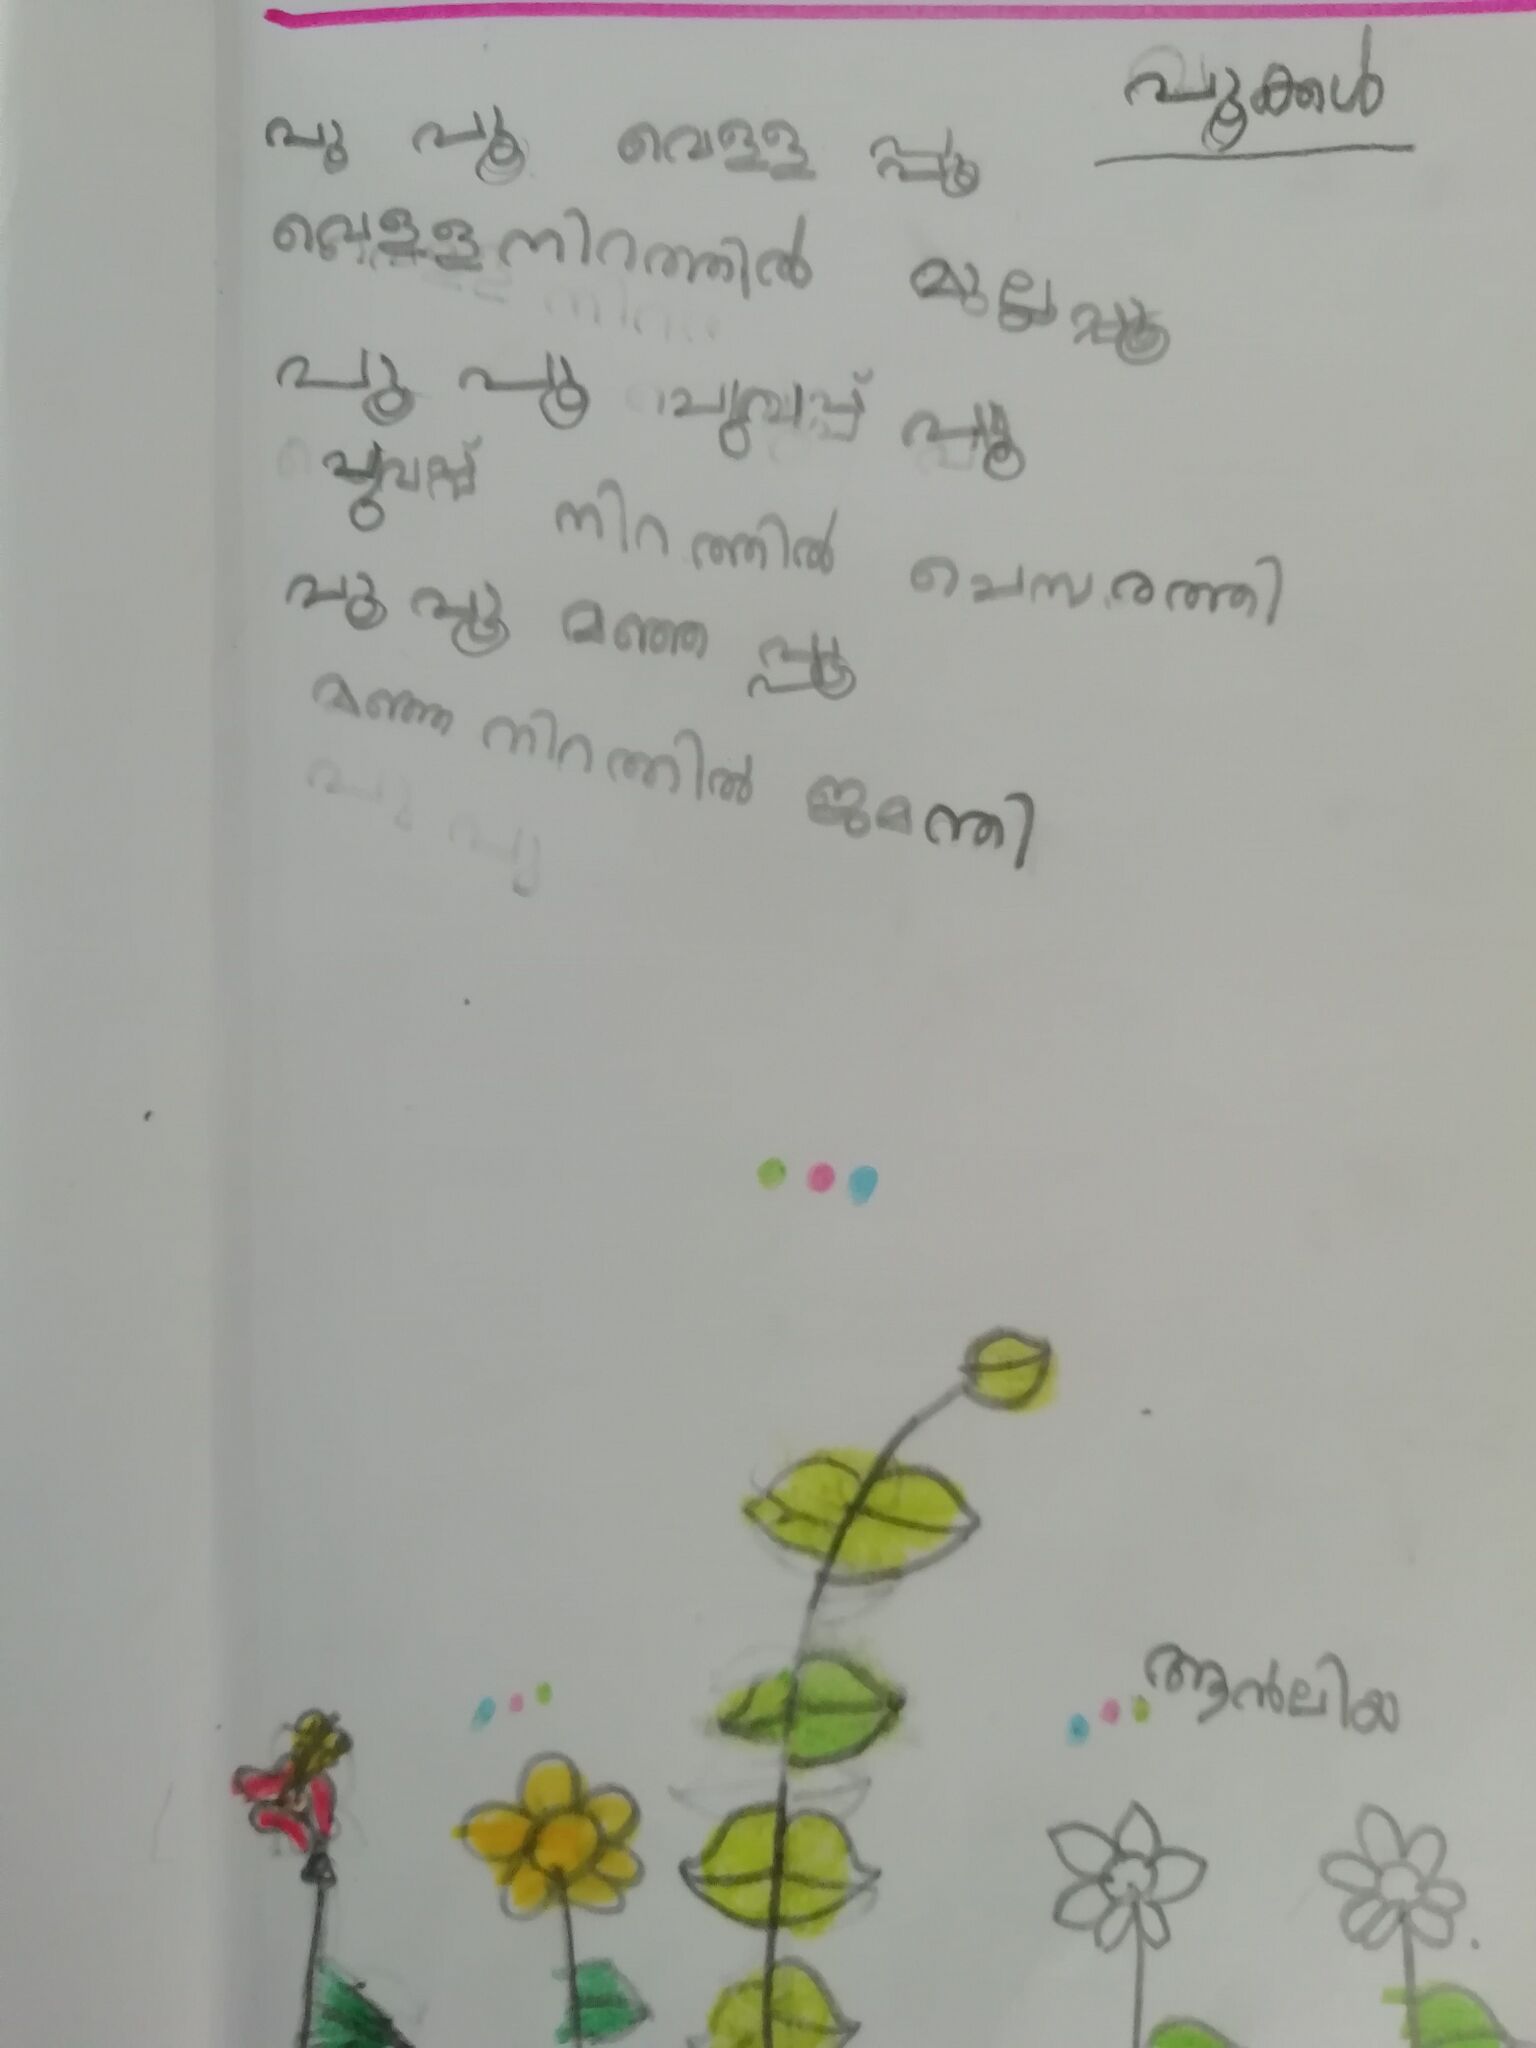 പൂക്കൾ
പൂ പൂ വെള്ള പ്പൂ
വെള്ളനിറത്തിൽ മുല്ലപ്പൂ
പൂ പൂ ചുവപ്പ് പൂ
ചുവപ്പ് നിറത്തിൽ ചെമ്പരത്തി
പൂ പൂ മഞ്ഞ പ്പൂ
മഞ്ഞ നിറത്തിൽ ജമന്തി
ആൻലിയ